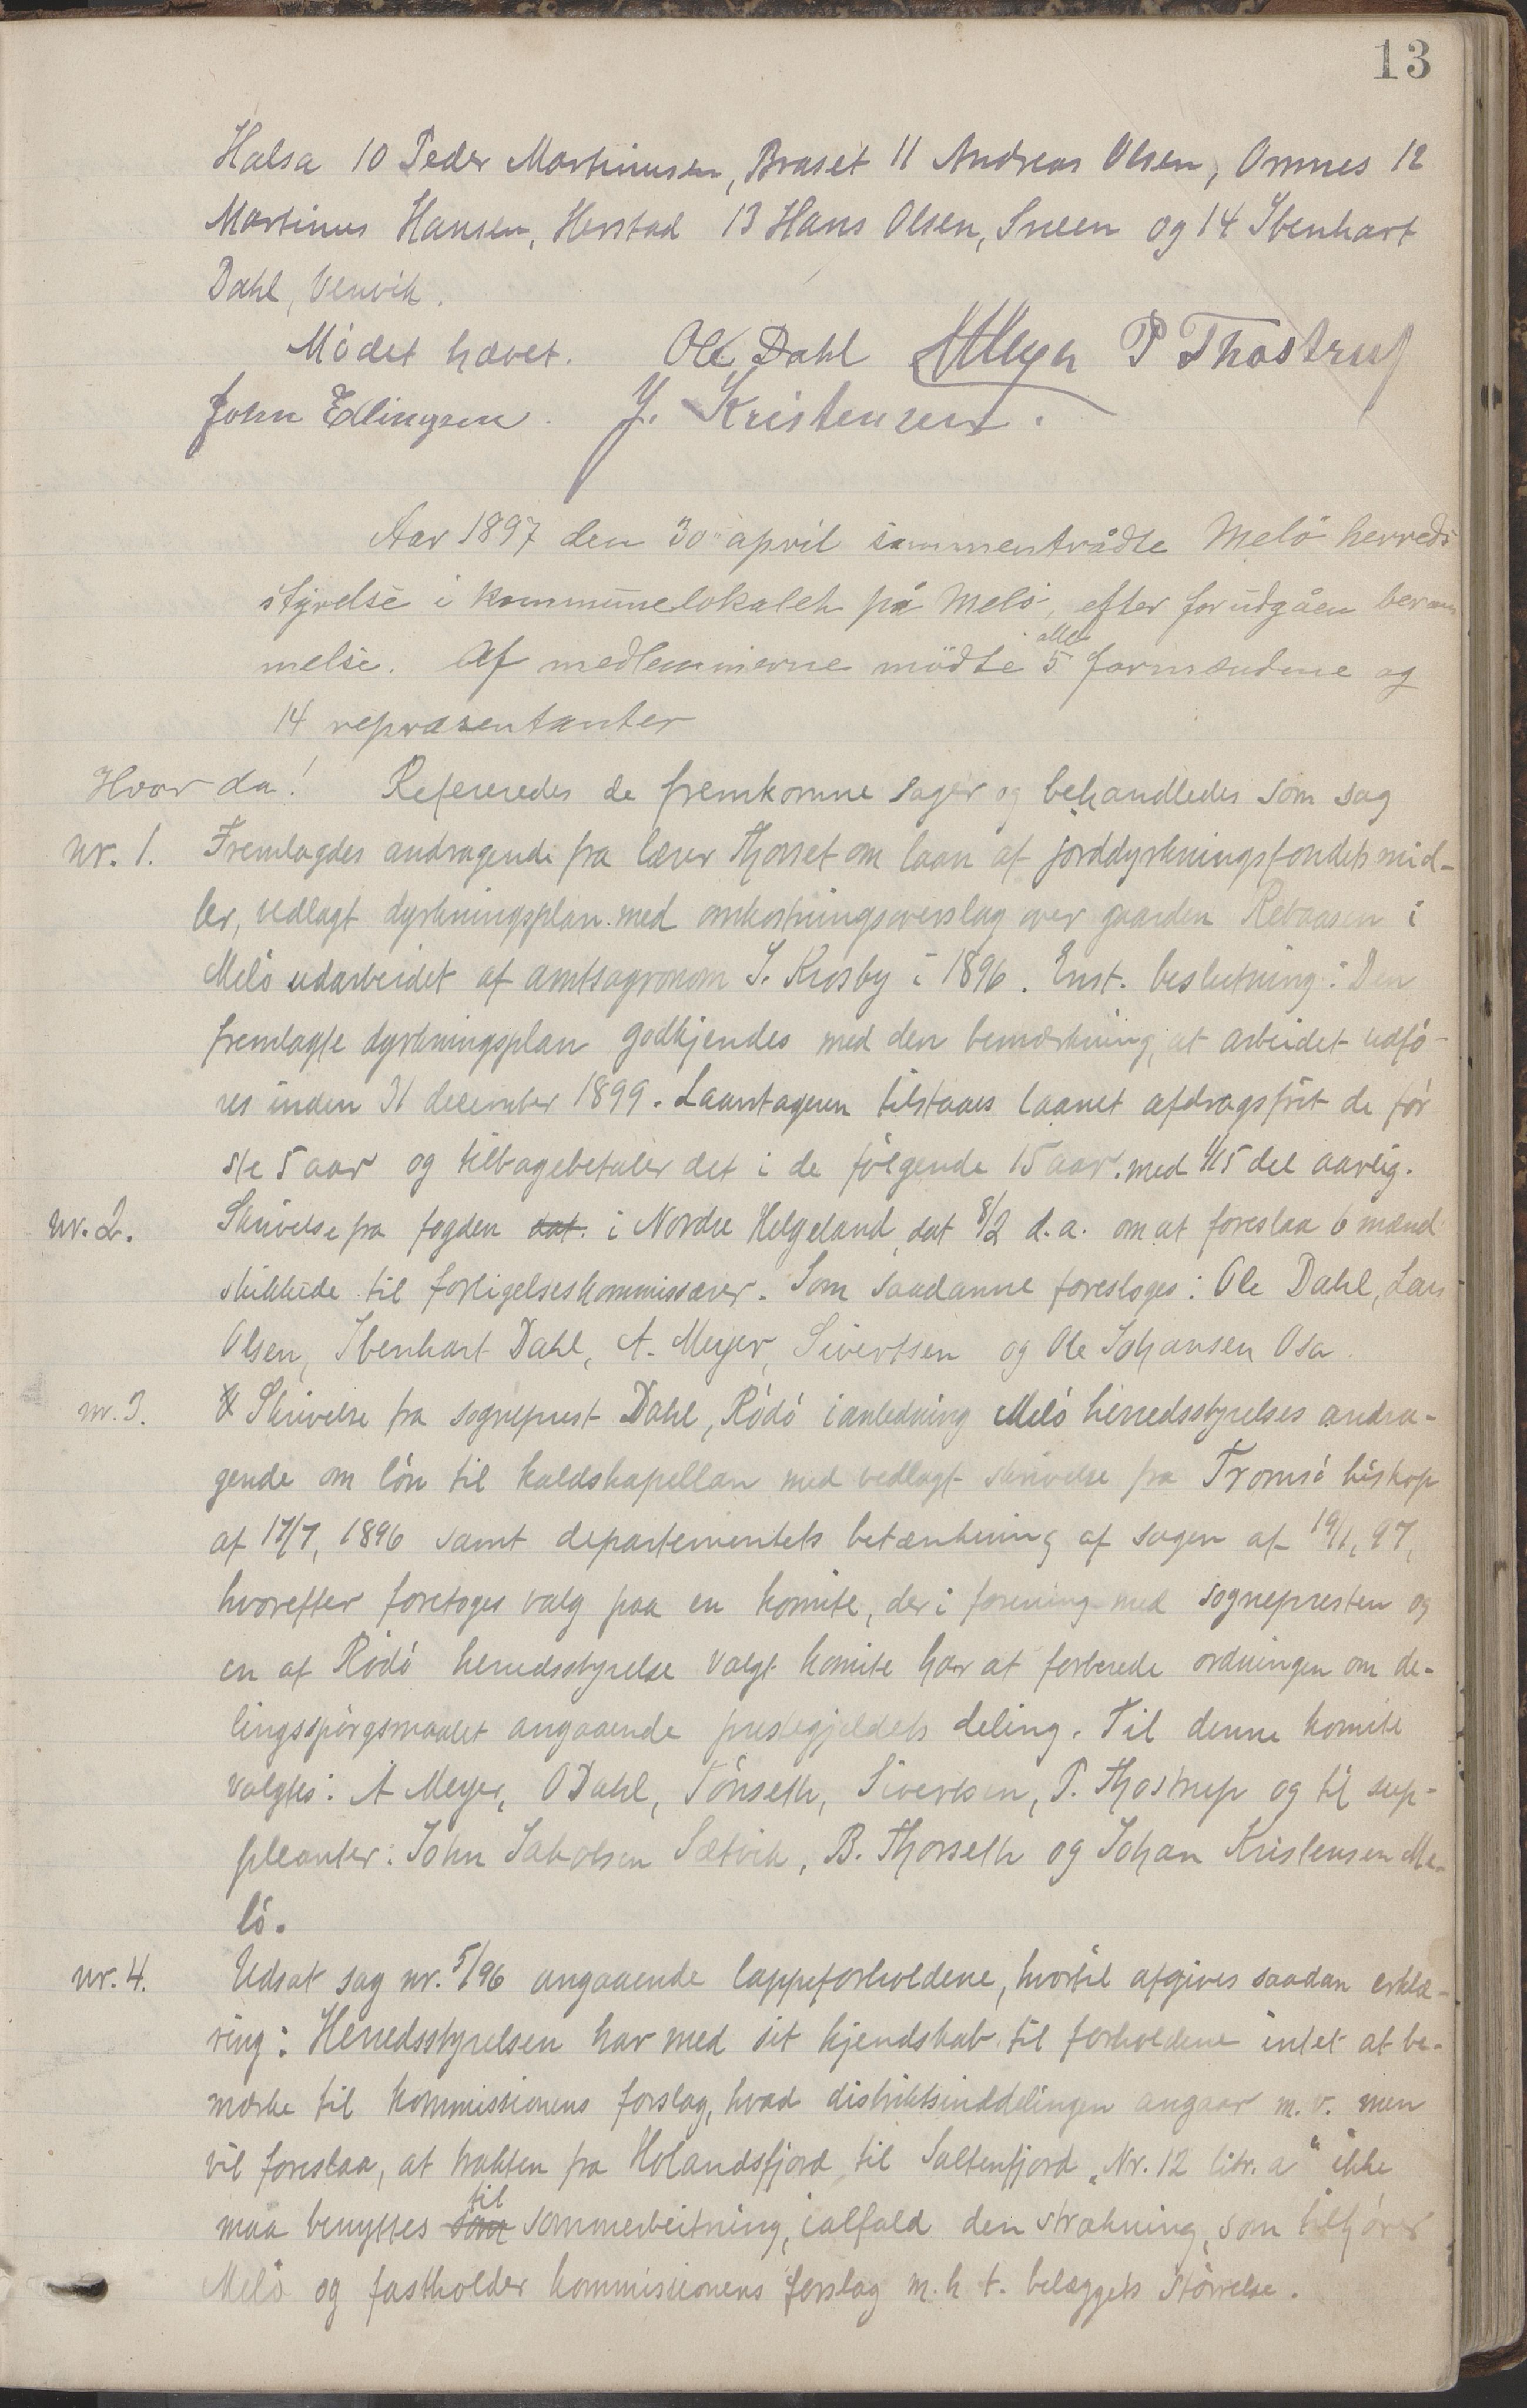 13
Halsa 10 Peder Martinusen, Braset 11 Andreas Olsen, Ornnes 12
Martinus Hansen, Herstad 13 Hans Olsen, Sneen og 14 Ibenhart
Dahl, Venvik.
Mödet hævet. Ole Dahl AMeyer P Thostrup
John Edlingsen. J. Kristensen.
Aar 1897 den 30 april sammentrådte Melö herreds
styrelse i kommunelokalet på Melö, efter forudgåen beram
melse. Af medlemmerne mödte alle 5 formændene og
14 repræsentanter
Hvor da! Refereredes de fremkomne sager og behandledes som sag
nr. 1. Fremlagdes andragende fra lærer Thorset om laan af jorddyrkningsfondets mid-
ler, vedlagt dyrkningsplan med omkostningsoverslag over gaarden Rebaasen i
Melö udarbeidet af amtsagronom S. Krosby i 1896. Enst. beslutning: Den
fremlagte dyrkningsplan godkjendes med den bemærkning, at arbeidet udfö-
res inden 31 december 1899. Laantageren tilstaaes laanet afdragsfrit de för
ste 5 aar og tilbagebetaler det i de fölgende 15 aar. med 1/15 del aarlig.
nr. 2. Skrivelse fra fogden dat. i Nordre Helgeland, dat 8/2 d.a. om at foreslaa 6 mænd
skikkede til forligelseskommissærer. Som saadanne foresloges: Ole Dahl, Lars
Olsen, Ibenhart Dahl, A. Meyer, Sivertsen og Ole Johansen Osa.
nr. 3. Skrivelse fra sogneprest Dahl, Rödö i anledning Melö herredsstyrelses andra-
gende om lön til kaldskapellan med vedlagt skrivelse fra Tromsö biskop
af 17/7, 1896 samt departementets betænkning af sagen af 19/1, 97,
hvorefter foretoges valg paa en komite, der i forening med sognepresten og
en af Rödö herredsstyrelse valgt komite har at forberede ordningen om de-
lingsspörgsmaalet angaaende prestegjeldets deling. Til denne komite
valgtes: A Meyer, O Dahl, Tönseth, Sivertsen, P. Thostrup og til sup-
pleanter: John Jakobsen Sætvik, B. Thorseth og Johan Kristensen Me-
lö.
nr. 4. Udsat sag nr. 5/96 angaaende lappeforholdene, hvortil afgives saadan erklæ-
ring: Herredsstyrelsen har med sit kjendskab til forholdene intet at be-
mærke til kommissionens forslag, hvad distriktsinddelingen angaar m.v. men
vil foreslaa, at trakten fra Holandsfjord til Saltenfjord „Nr. 12 litr. a" ikke
maa benyttes som til sommerbeitning, ialfald den strækning, som tilhörer
Melö og fastholder kommissionens forslag m.h.t. belæggets störrelse.